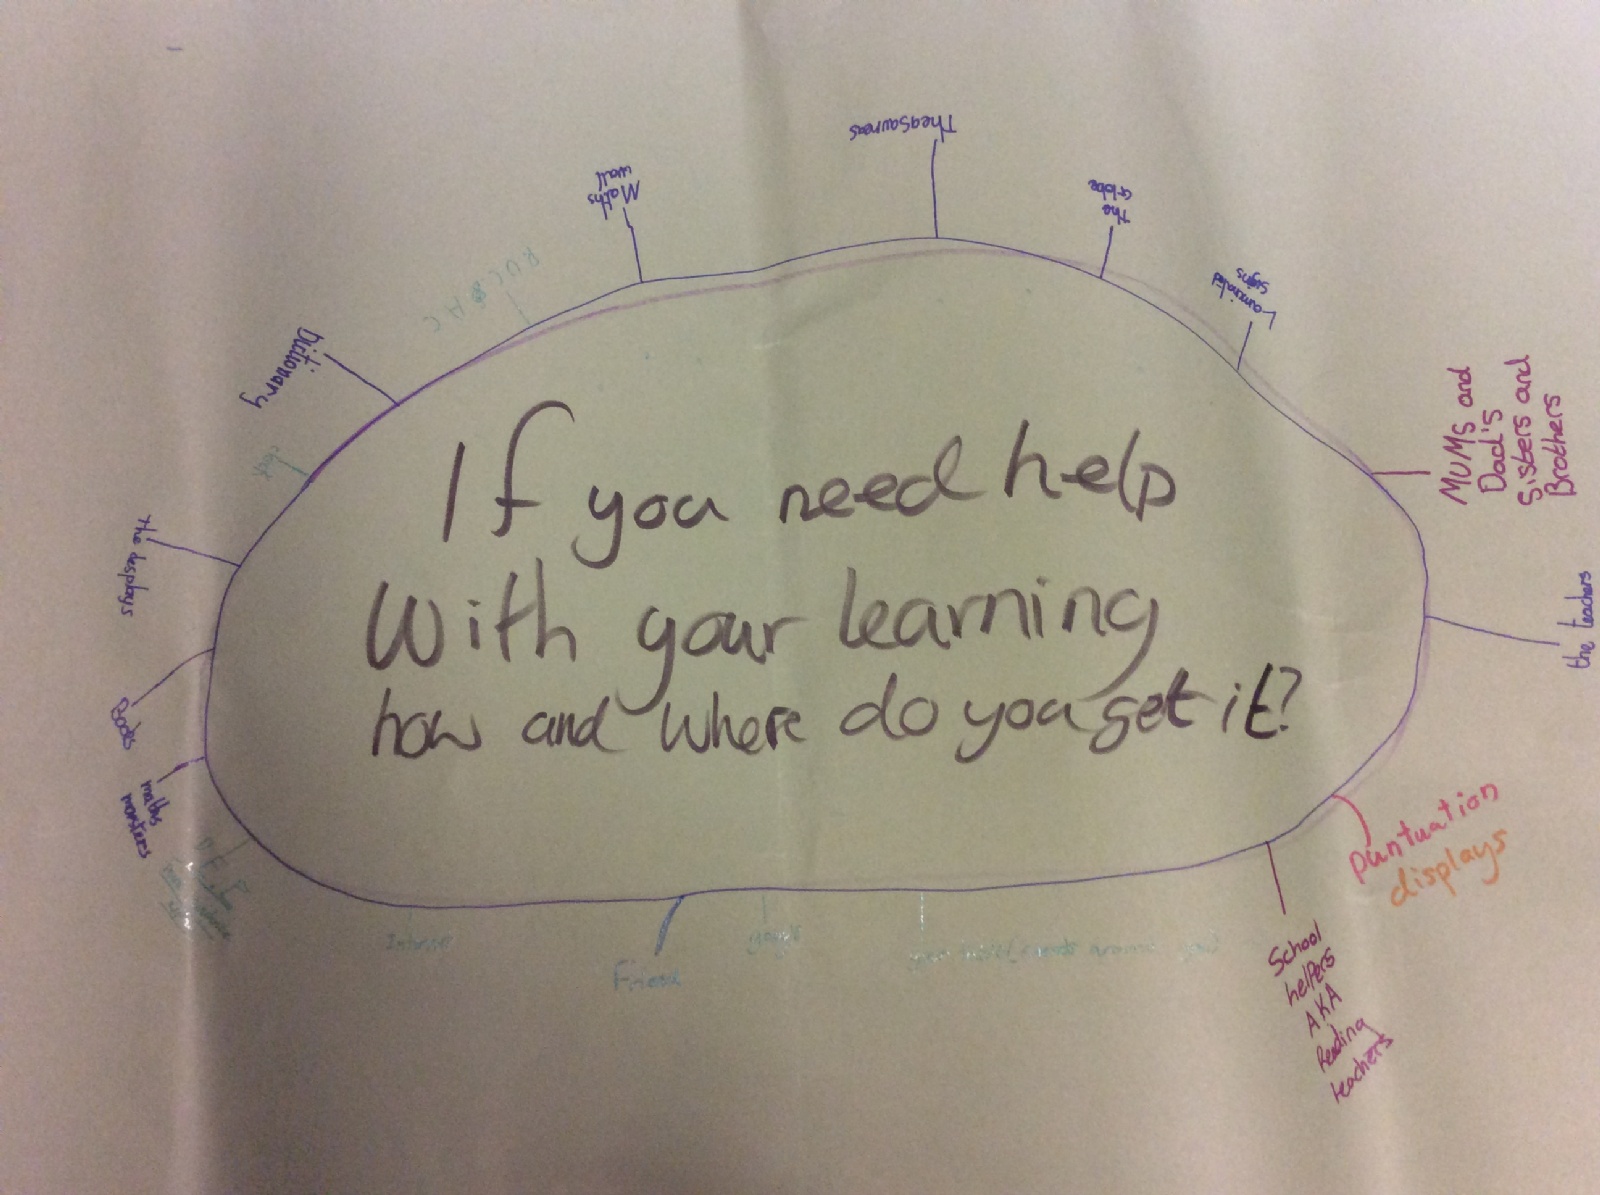 If you need help
With your learning
how and where do you get it?
Theasaureas
The
Globe
Laminated
signs
MUMS and
Dad's
Sisters and
Brothers
the teachers
puntuation
displays
School
helpers
AKA
Reading
teachers
Friend
Internet
maths
monsters
Books
the desplays
clock
Dictionary
RUCSAC
Maths
wall